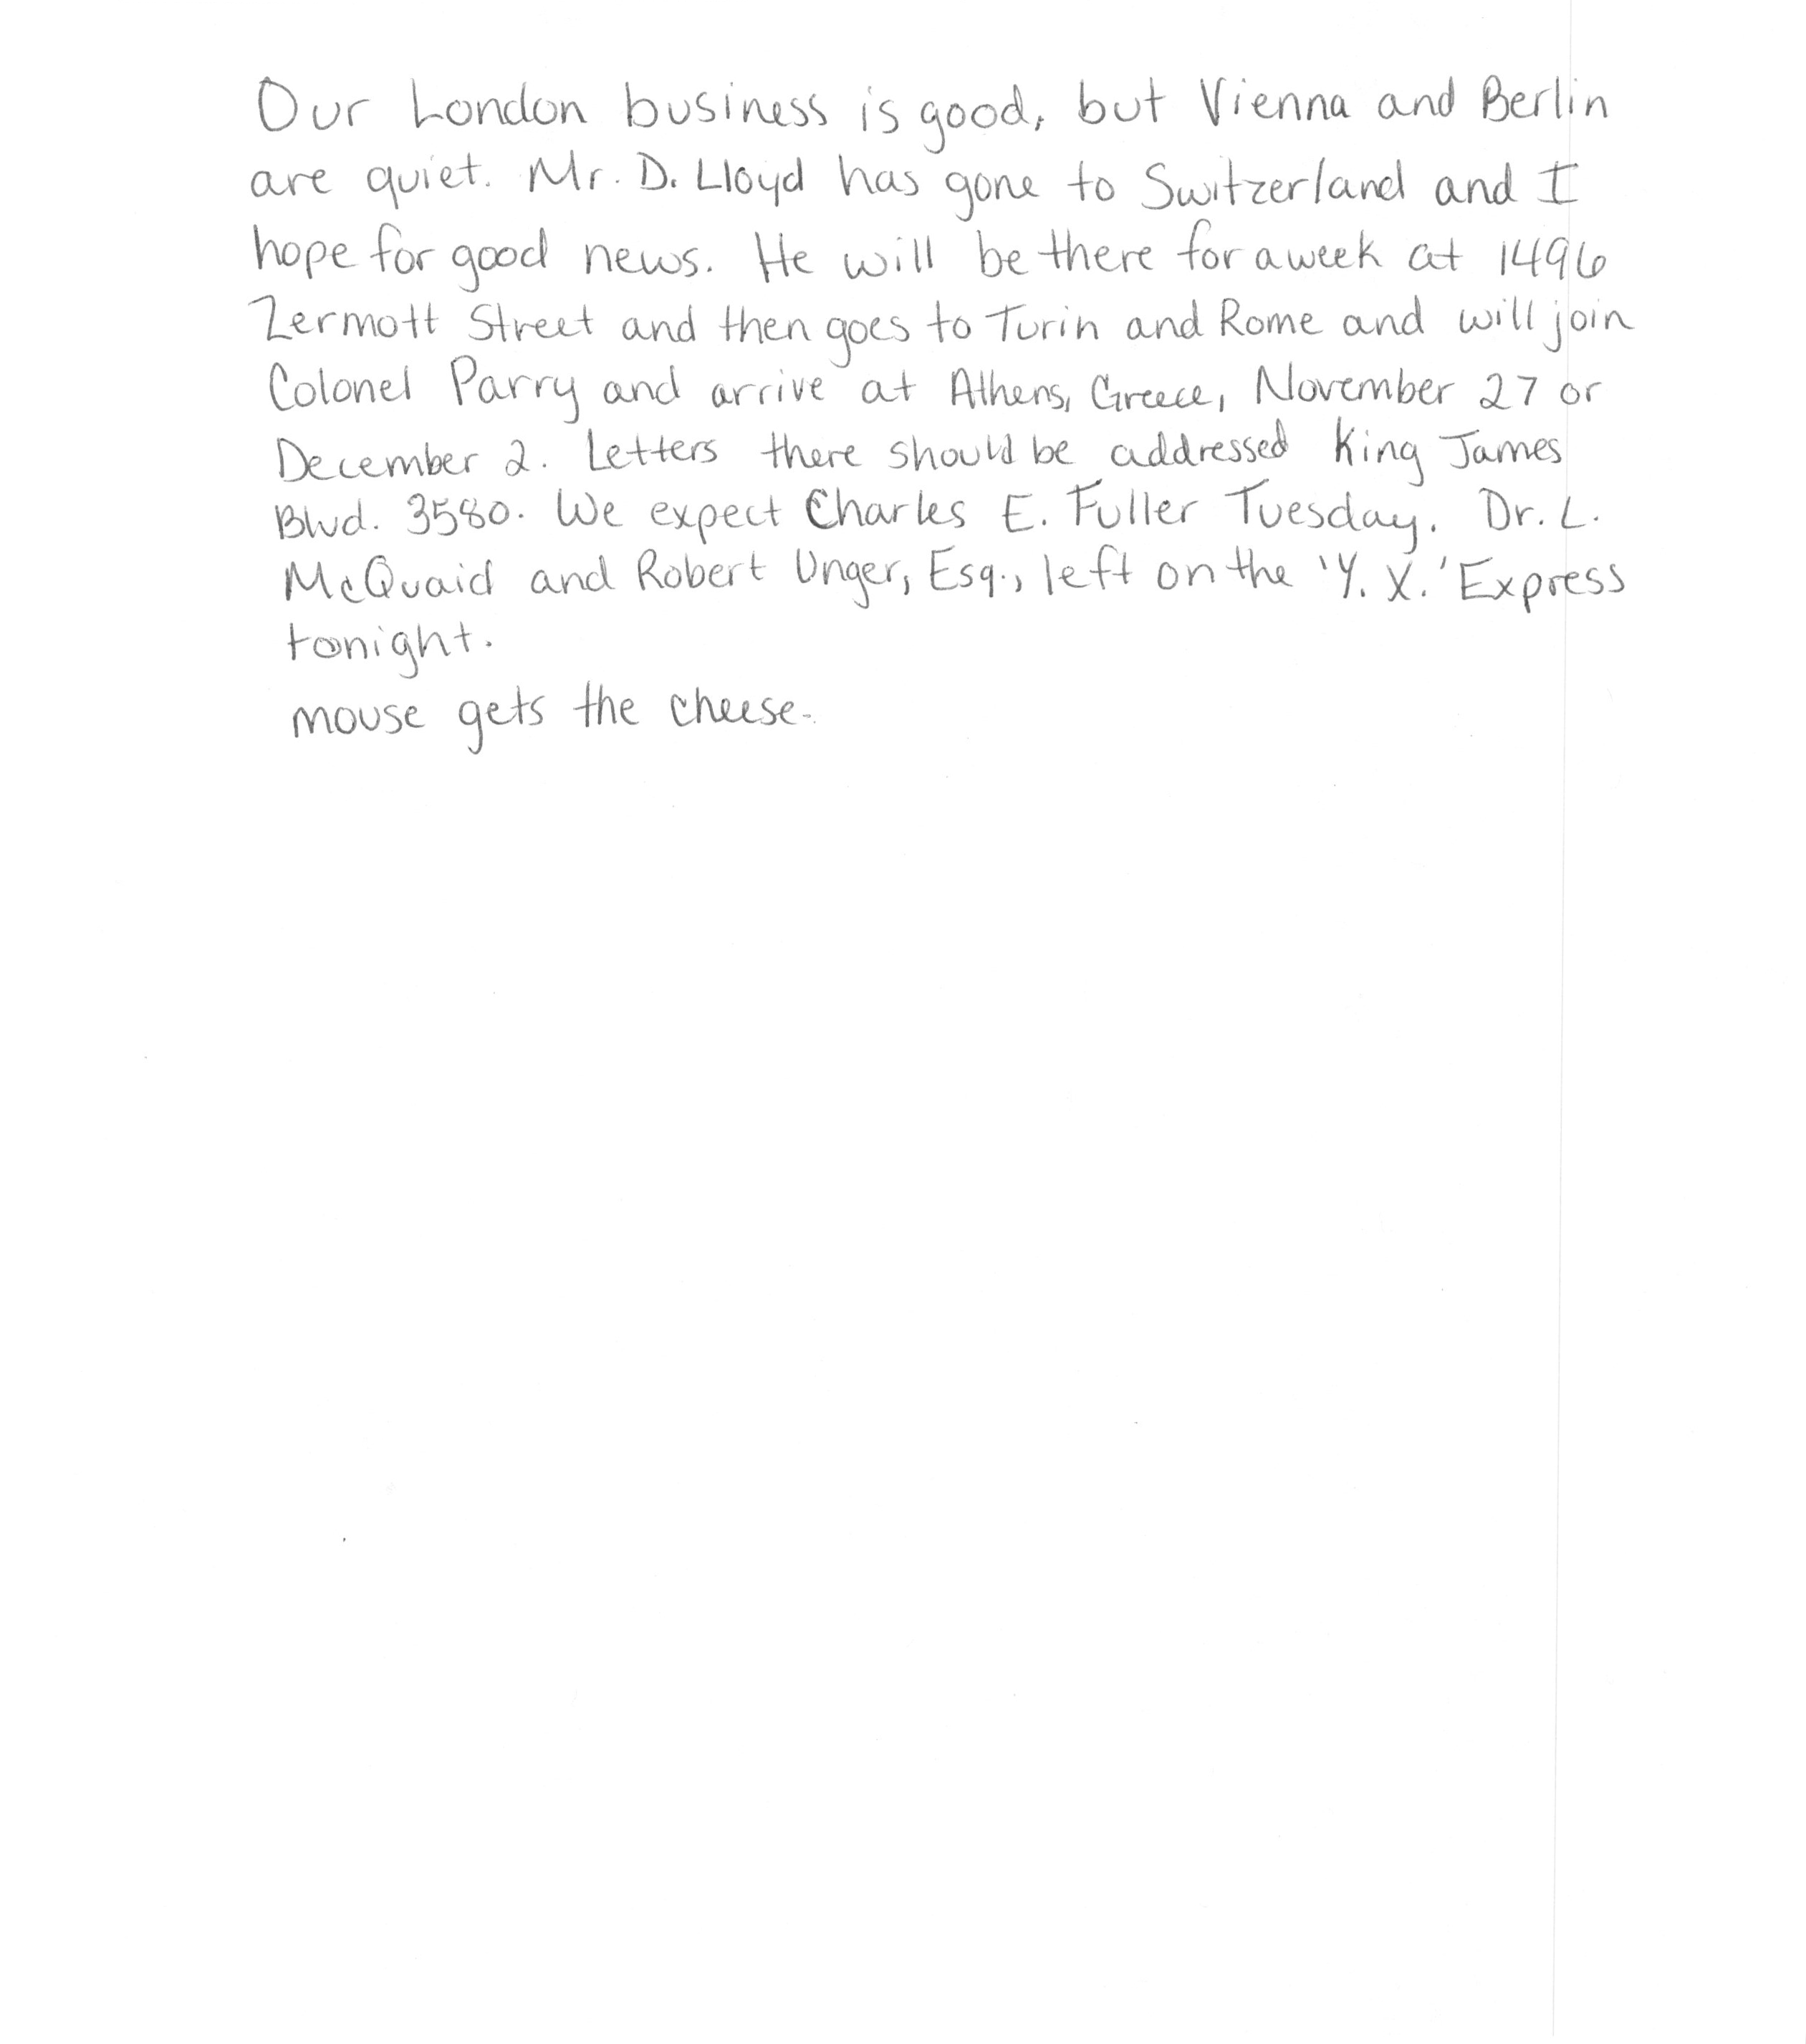 Our London business is good, but Vienna and Berlin
are quiet. Mr. D. Lloyd has gone to Switzerland and I
hope for good news. He will be there for a week at 1496
Zermott Street and then goes to Turin and Rome and will join
Colonel Parry and arrive at Athens, Greece, November 27 or
December 2. Letters there should be addressed King James
Blvd. 3580. We expect Charles E. Fuller Tuesday. Dr. L.
McQuaid and Robert Unger, Esq., left on the 'Y. X.' Express
tonight.
mouse gets the cheese.